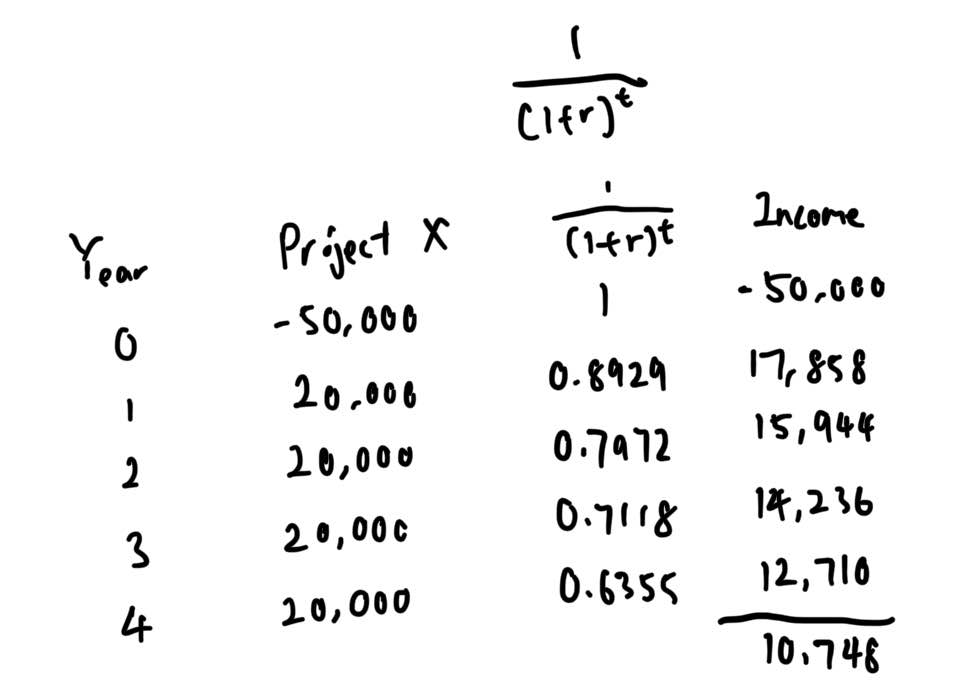 1
(1+r)^t
Year Project X 1/(1+r)^t Income
0 -50,000 1 -50,000
1 20,000 0.8929 17,858
2 20,000 0.7972 15,944
3 20,000 0.7118 14,236
4 20,000 0.6355 12,710
10,748